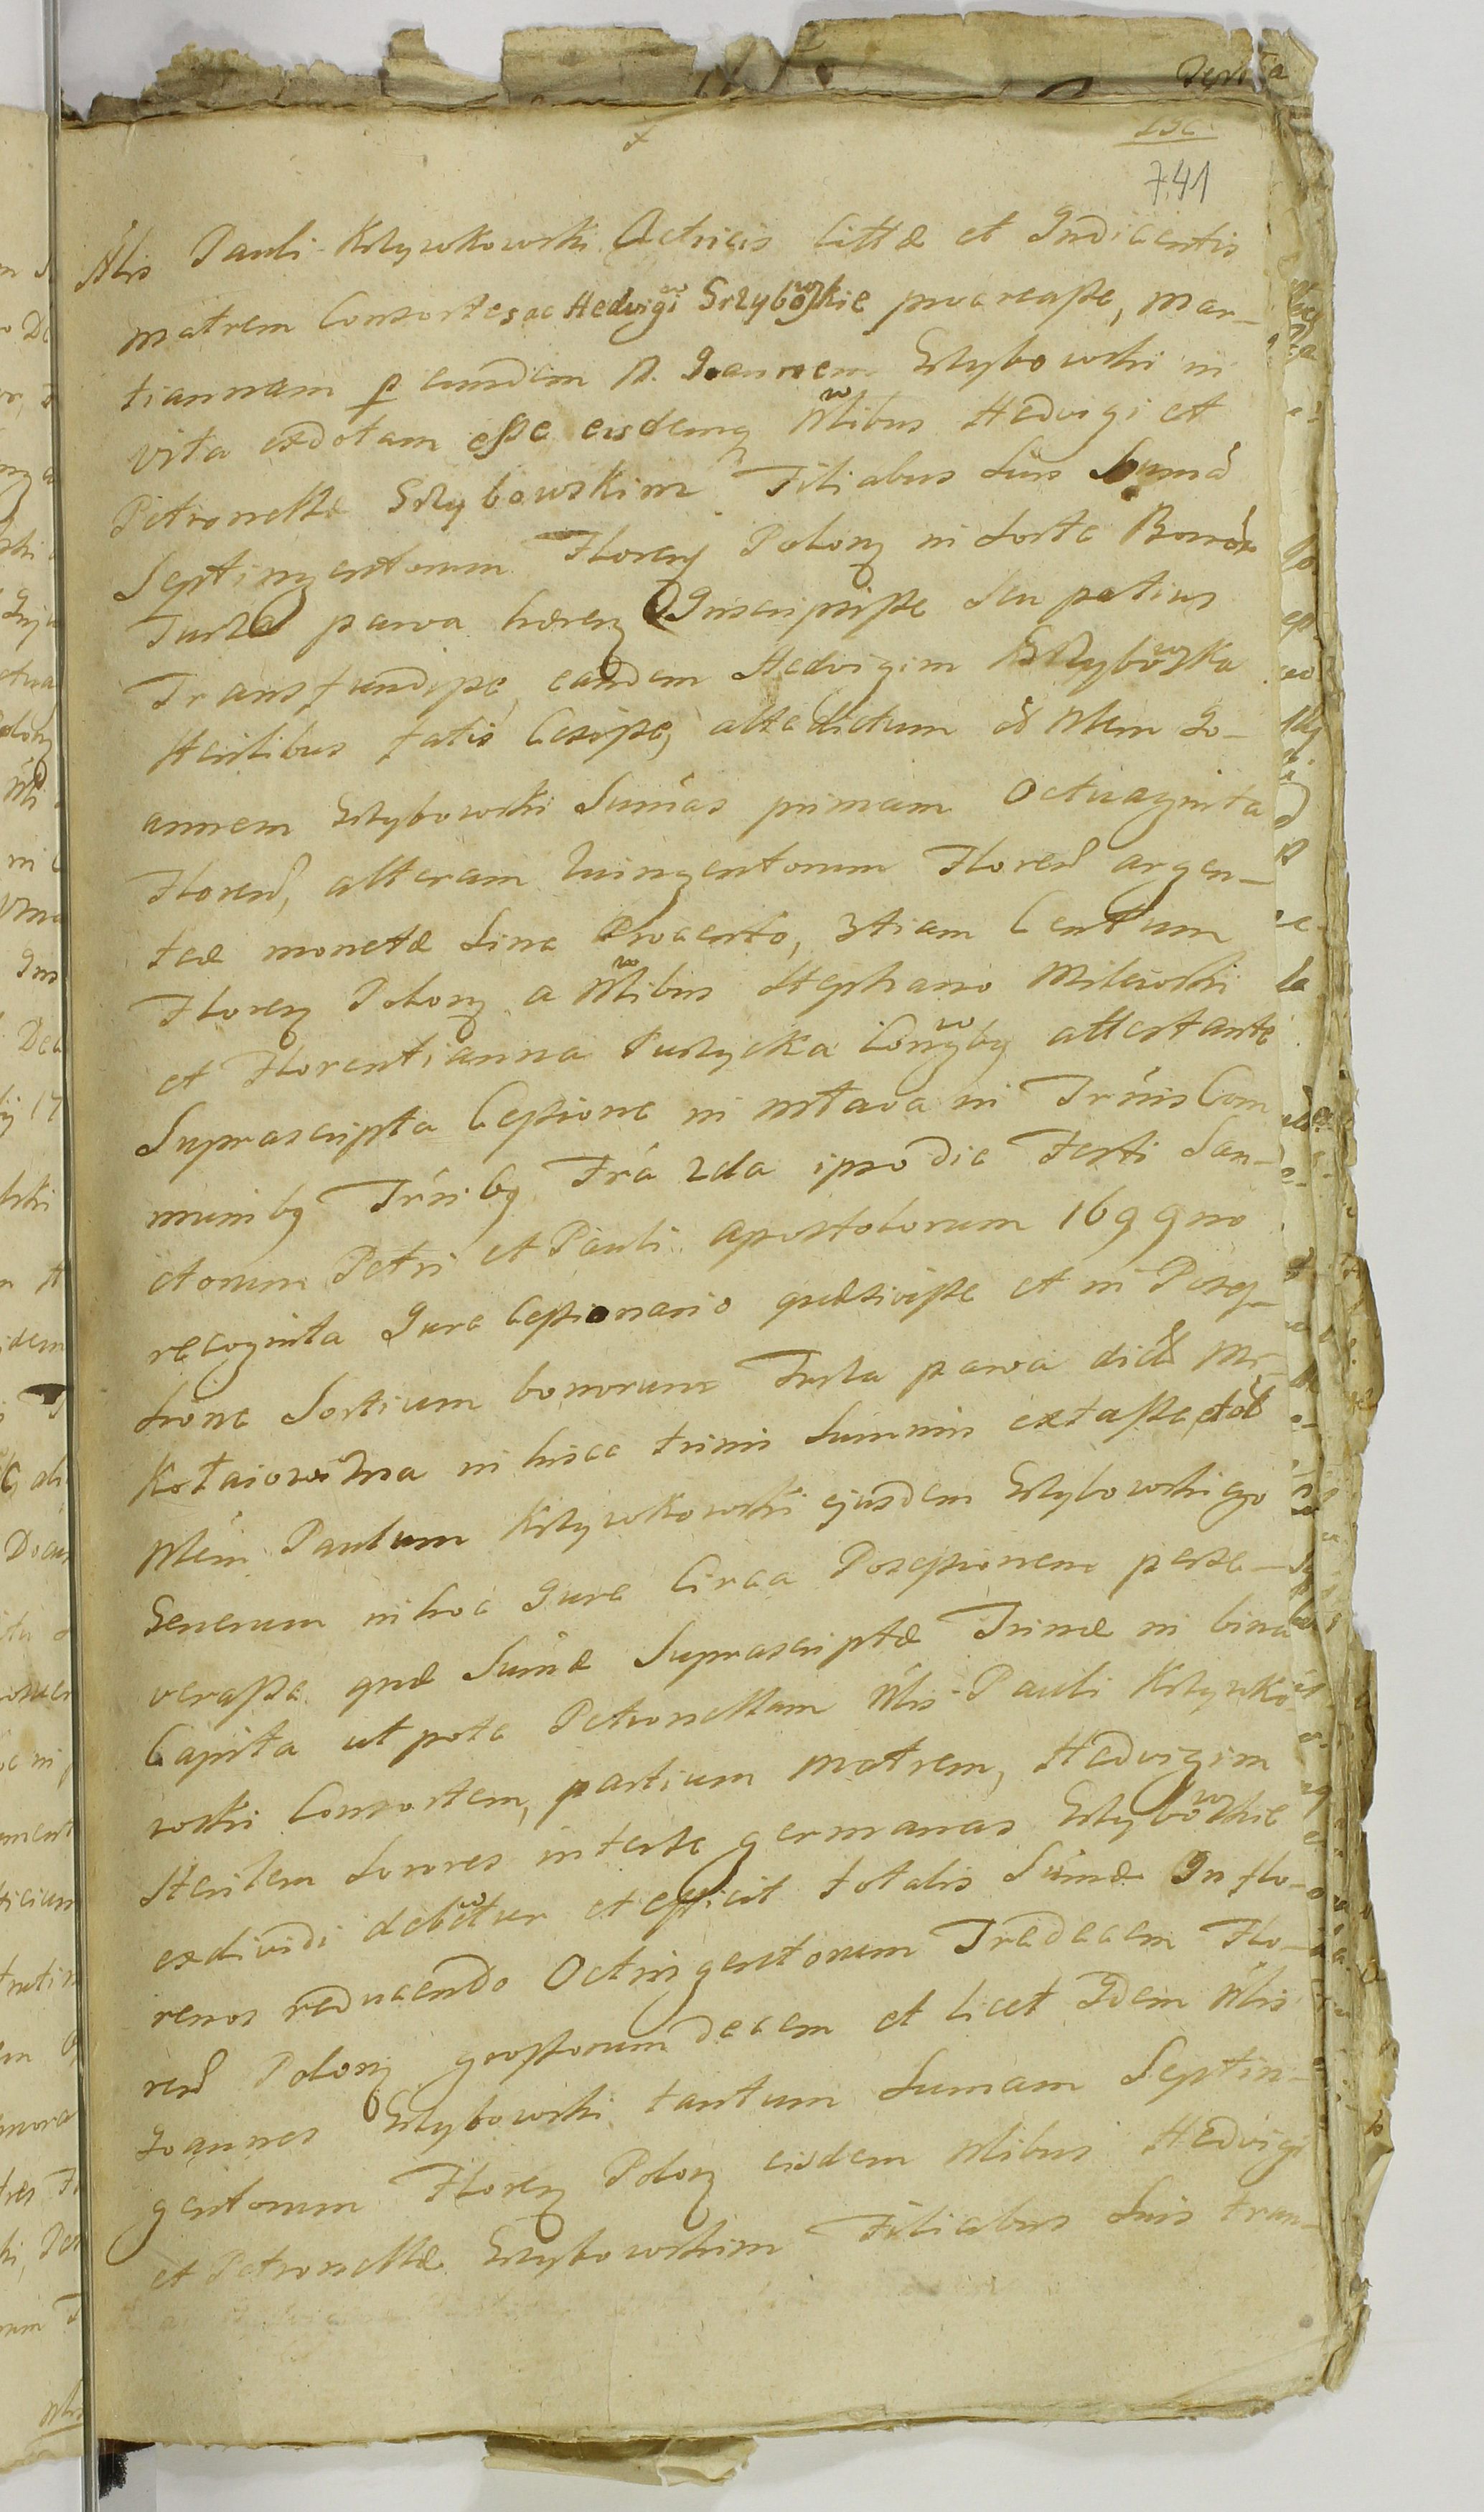 136
741
Mlis Pauli Krzywkowski Actricis Cittae et Indicentis
matrem Consortes ac Hedvigi Srzybowskie procreasse, Mar-
tiannam p eundem M. Joannem Srzybowski in
vita exdotam esse eisdemq Mlibus Hedvigi et
Petronellae Srzybowskim Filiabus suis Suma
Septingentorum Floren Polon in sorte Bonor
Turza parva haeren Inscripsisse seu potius
Transfundisse, eandem Hedvigim Srzybowska
sterilibus fatis Cessisse, altedictum M Mlem Jo-
annem Srzybowski Sumas primam Octuaginta
Floren, alteram Quingentorum Floren argen-
teae monetae sine Provento, 3tiam Centum
Floren Polon a Mlibus Stephano Milewski
et Florentianna Puszycka Conyby attestante
Suprascripta Cessione in Mtava in Trnis Com
munibg Trnibg Fra 2da ipso die Festi San-
ctorum Petri et Pauli Apostolorum 1699no
recognita Jure Cessionario quaesivisse et in Posse-
ssione Sortium bonorum Turza parva dict Mi-
Kołaiowizna in hisce trinis summis extasse, et
Mlem Paulum Krzywkowski ejusdem Srzybowskiego
Generum in hoc Jure Circa Possessionem perse-
verasse quae Sumae Suprascriptae Trinae in bina
Capita utpote Petronellam Mlis Pauli Krzywko-
wski Consortem, partium Matrem, Hedvigim
sterilem sorores interse germanas Srzybowskie
exdividi debetur et efficit totalis Sumae In flo-
renos reducendo Octingentorum Tredecem Flo-
ren Polon grossorum decem et licet Idem Mlis
Joannes Srzybowski tantum Sumam Septin-
gentorum Floren Polon eisdem Mlibus Hedvigi
et Petronellae Srzybowskim Filiabus suis tran-